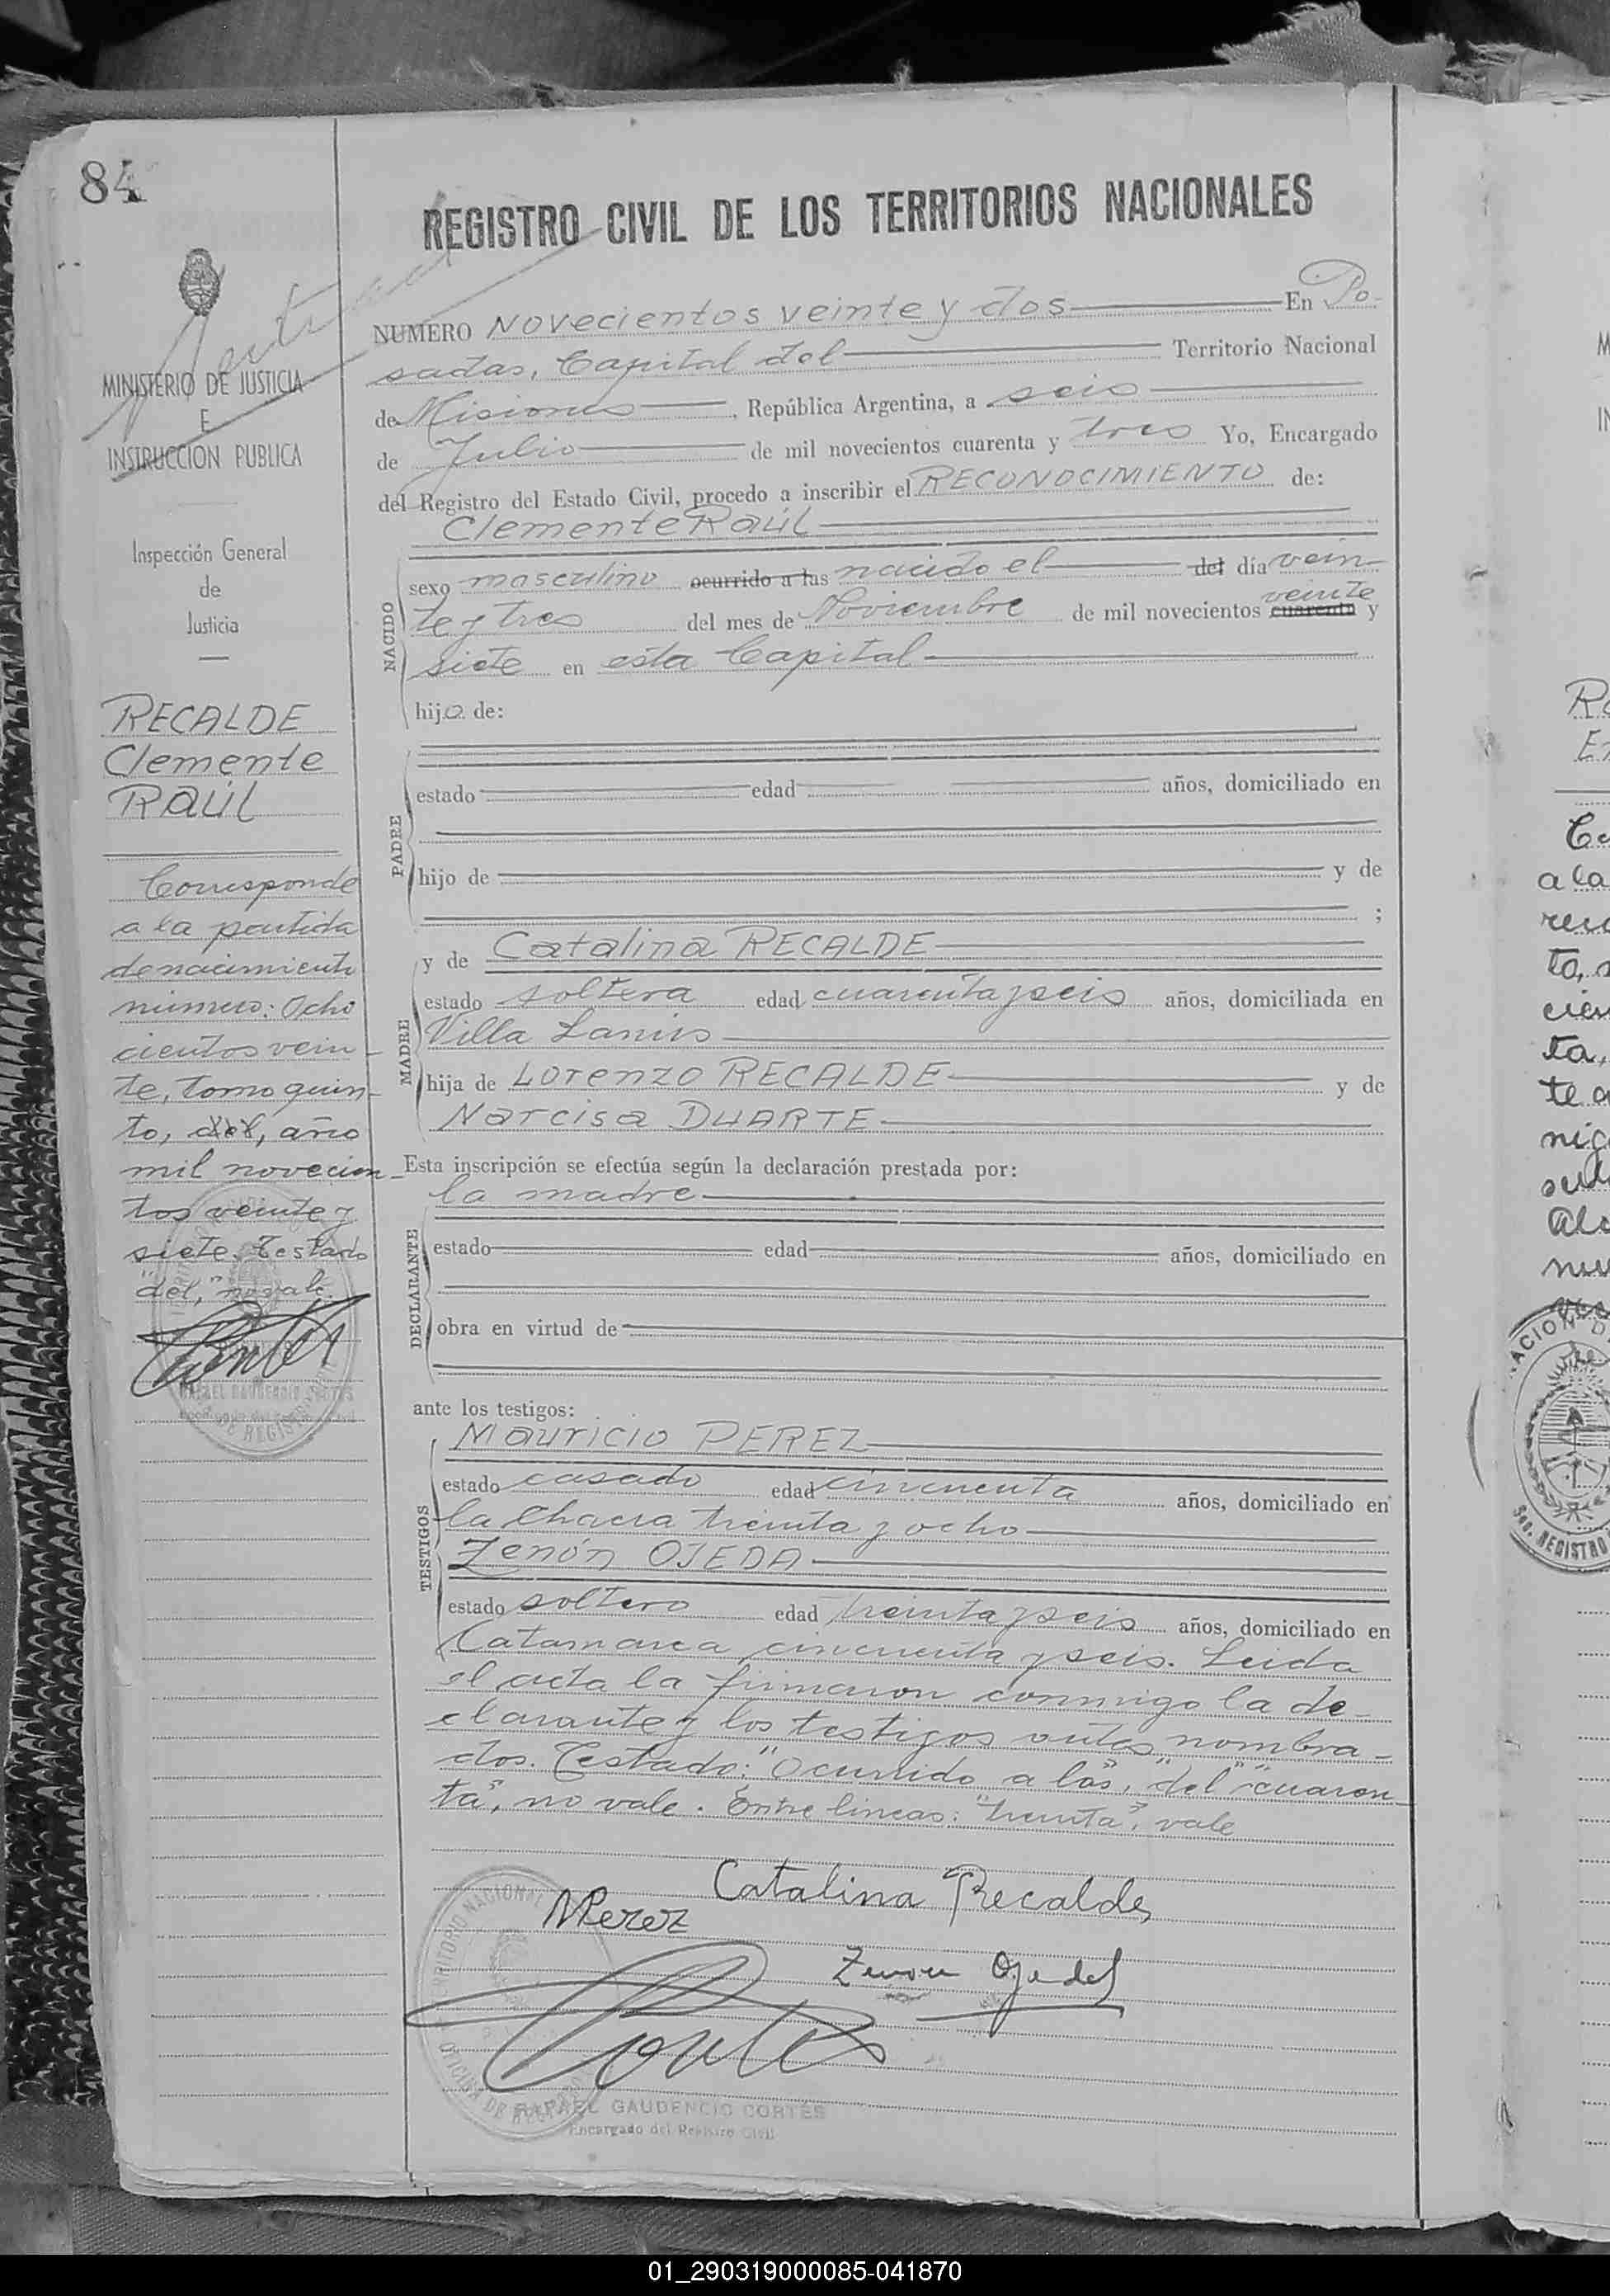 84
REGISTRO CIVIL DE LOS TERRITORIOS NACIONALES
MINISTERIO DE JUSTICIA
E
INSTRUCCION PUBLICA
Inspección General
de
Justicia
RECALDE
Clemente
Raúl
Corresponde
a la partida
de nacimiento
número: Ocho
cientos vein-
te, tomo quin-
to, del, año
mil novecien-
tos veinte y
siete. Testado
"del," no vale.
RAFAEL GAUDENCIO CORTES
Encargado del Registro Civil
NUMERO Novecientos veinte y dos En Po-
sadas, Capital del Territorio Nacional
de Misiones, República Argentina, a seis
de Julio de mil novecientos cuarenta y tres Yo, Encargado
del Registro del Estado Civil, procedo a inscribir el RECONOCIMIENTO de:
Clemente Raúl
NACIDO
sexo masculino ocurrido a las nacido el del día vein-
veinte
te y tres del mes de Noviembre de mil novecientos cuarenta y
siete en esta Capital
hijo de:
PADRE
estado edad años, domiciliado en
hijo de y de
;
MADRE
y de Catalina RECALDE
estado soltera edad cuarenta y seis años, domiciliada en
Villa Lanús
hija de Lorenzo RECALDE y de
Narcisa DUARTE
Esta inscripción se efectúa según la declaración prestada por:
la madre
DECLARANTE
estado edad años, domiciliado en
obra en virtud de
ante los testigos:
TESTIGOS
Mauricio PEREZ
estado casado edad cincuenta años, domiciliado en
la Chacra treinta y ocho
Zenón OJEDA
estado soltero edad treinta y seis años, domiciliado en
Catamarca cincuenta y seis. Leida
el acta la firmaron conmigo la de-
clarante y los testigos antes nombra-
dos. Testado: "Ocurrido a las", "del" "cuaren-
ta", no vale. Entre lineas: "treinta", vale
Catalina Recalde
MPerez
Zenon Ojeda
Cortes
RAFAEL GAUDENCIO CORTES
Encargado del Registro Civil
01_290319000085-041870